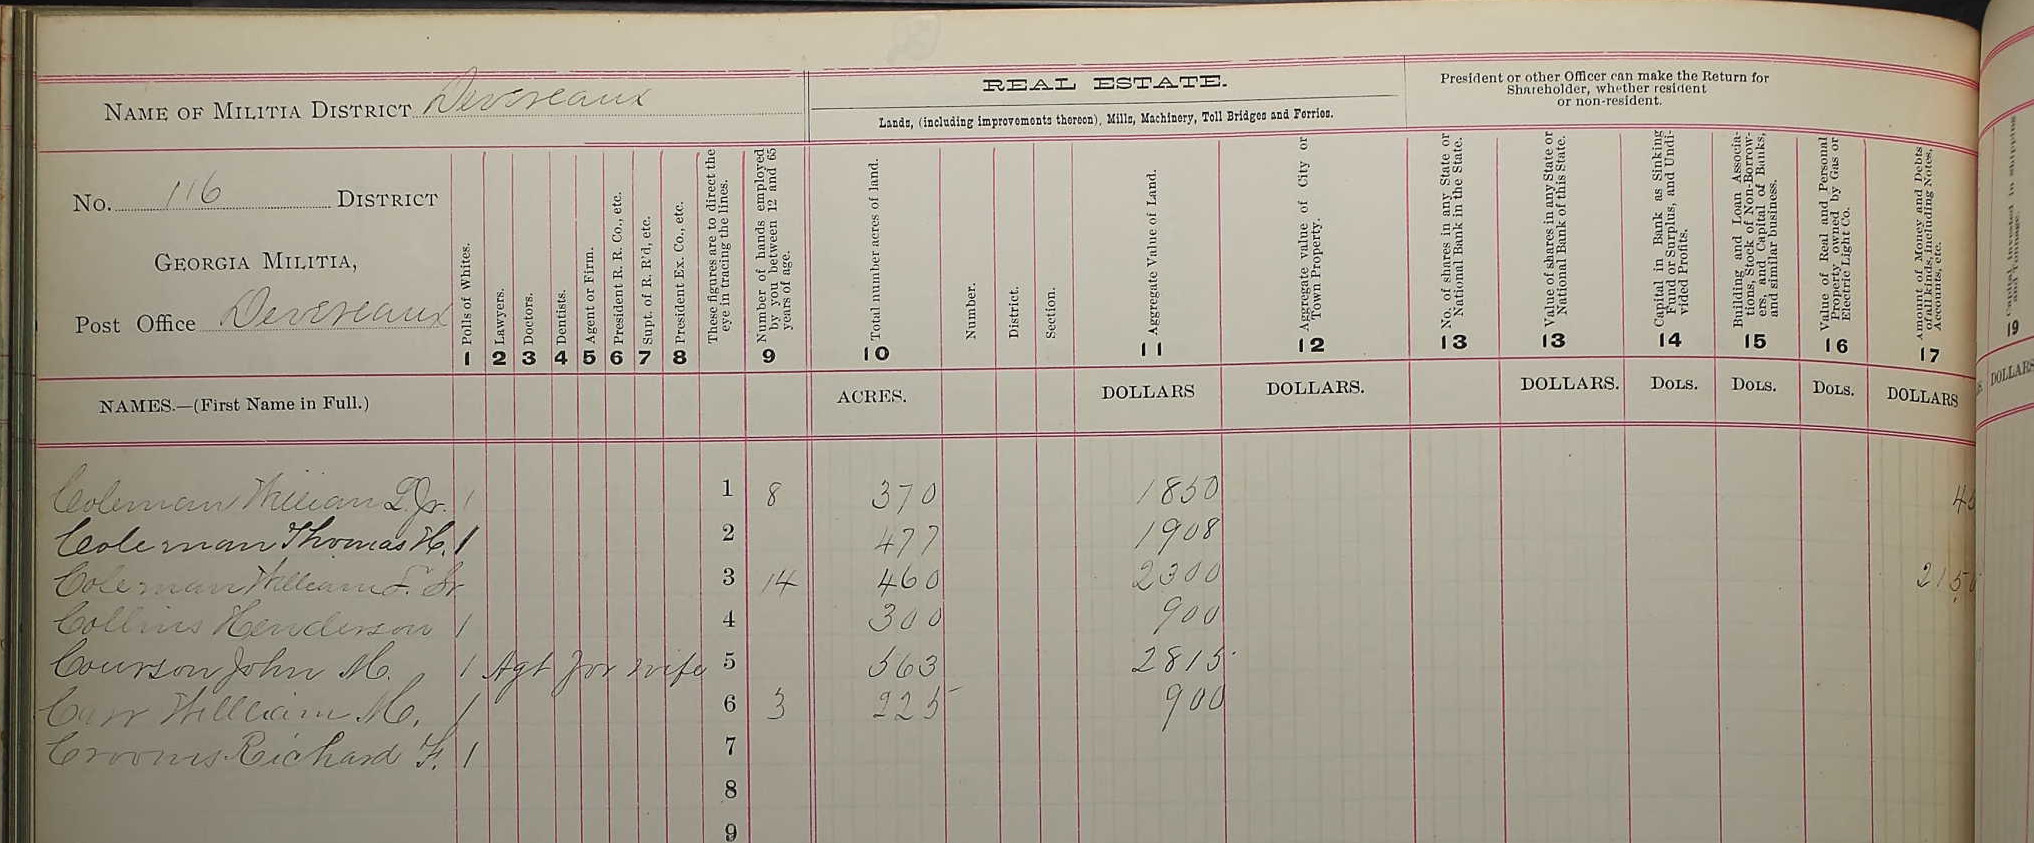 NAME OF MILITIA DISTRICT Devereaux
REAL ESTATE.
Lands, (including improvements thereon), Mills, Machinery, Toll Bridges and Ferries.
President or other Officer can make the Return for
Shareholder, whether resident
or non-resident.
No. 116 DISTRICT
GEORGIA MILITIA,
Post Office Devereaux
Polls of Whites.
1
Lawyers.
2
Doctors.
3
Dentists.
4
Agent or Firm.
5
President R. R. Co., etc.
6
Supt. of R. R'd, etc.
7
President Ex. Co., etc.
8
These figures are to direct the
eye in tracing the lines.
Number of hands employed
by you between 12 and 65
years of age.
9
Total number acres of land.
10
Number.
District.
Section.
Aggregate Value of Land.
11
Aggregate value of City or
Town Property.
12
No. of shares in any State or
National Bank in the State.
13
Value of shares in any State or
National Bank of this State.
13
Capital in Bank as Sinking
Fund or Surplus, and Undi-
vided Profits.
14
Building and Loan Associa-
tions, Stock of Non-Borrow-
ers, and Capital of Banks,
and similar business.
15
Value of Real and Personal
Property owned by Gas or
Electric Light Co.
16
Amount of Money and Debts
of all kinds, including Notes,
Accounts, etc.
17
Capital invested in shipping
and Tonnage.
19
NAMES.—(First Name in Full.) ACRES. DOLLARS DOLLARS. DOLLARS. DOLS. DOLS. DOLS. DOLLARS DOLLARS
Coleman William L. Jr. 1 1 8 370 1850 45
Coleman Thomas H. 1 2 477 1908
Coleman William F. Sr 3 14 460 2300 2150
Collins Henderson 1 4 300 900
Courson John M. 1 Agt for wife 5 563 2815
Carr William M. 1 6 3 225 900
Crooms Richard F. 1 7
8
9